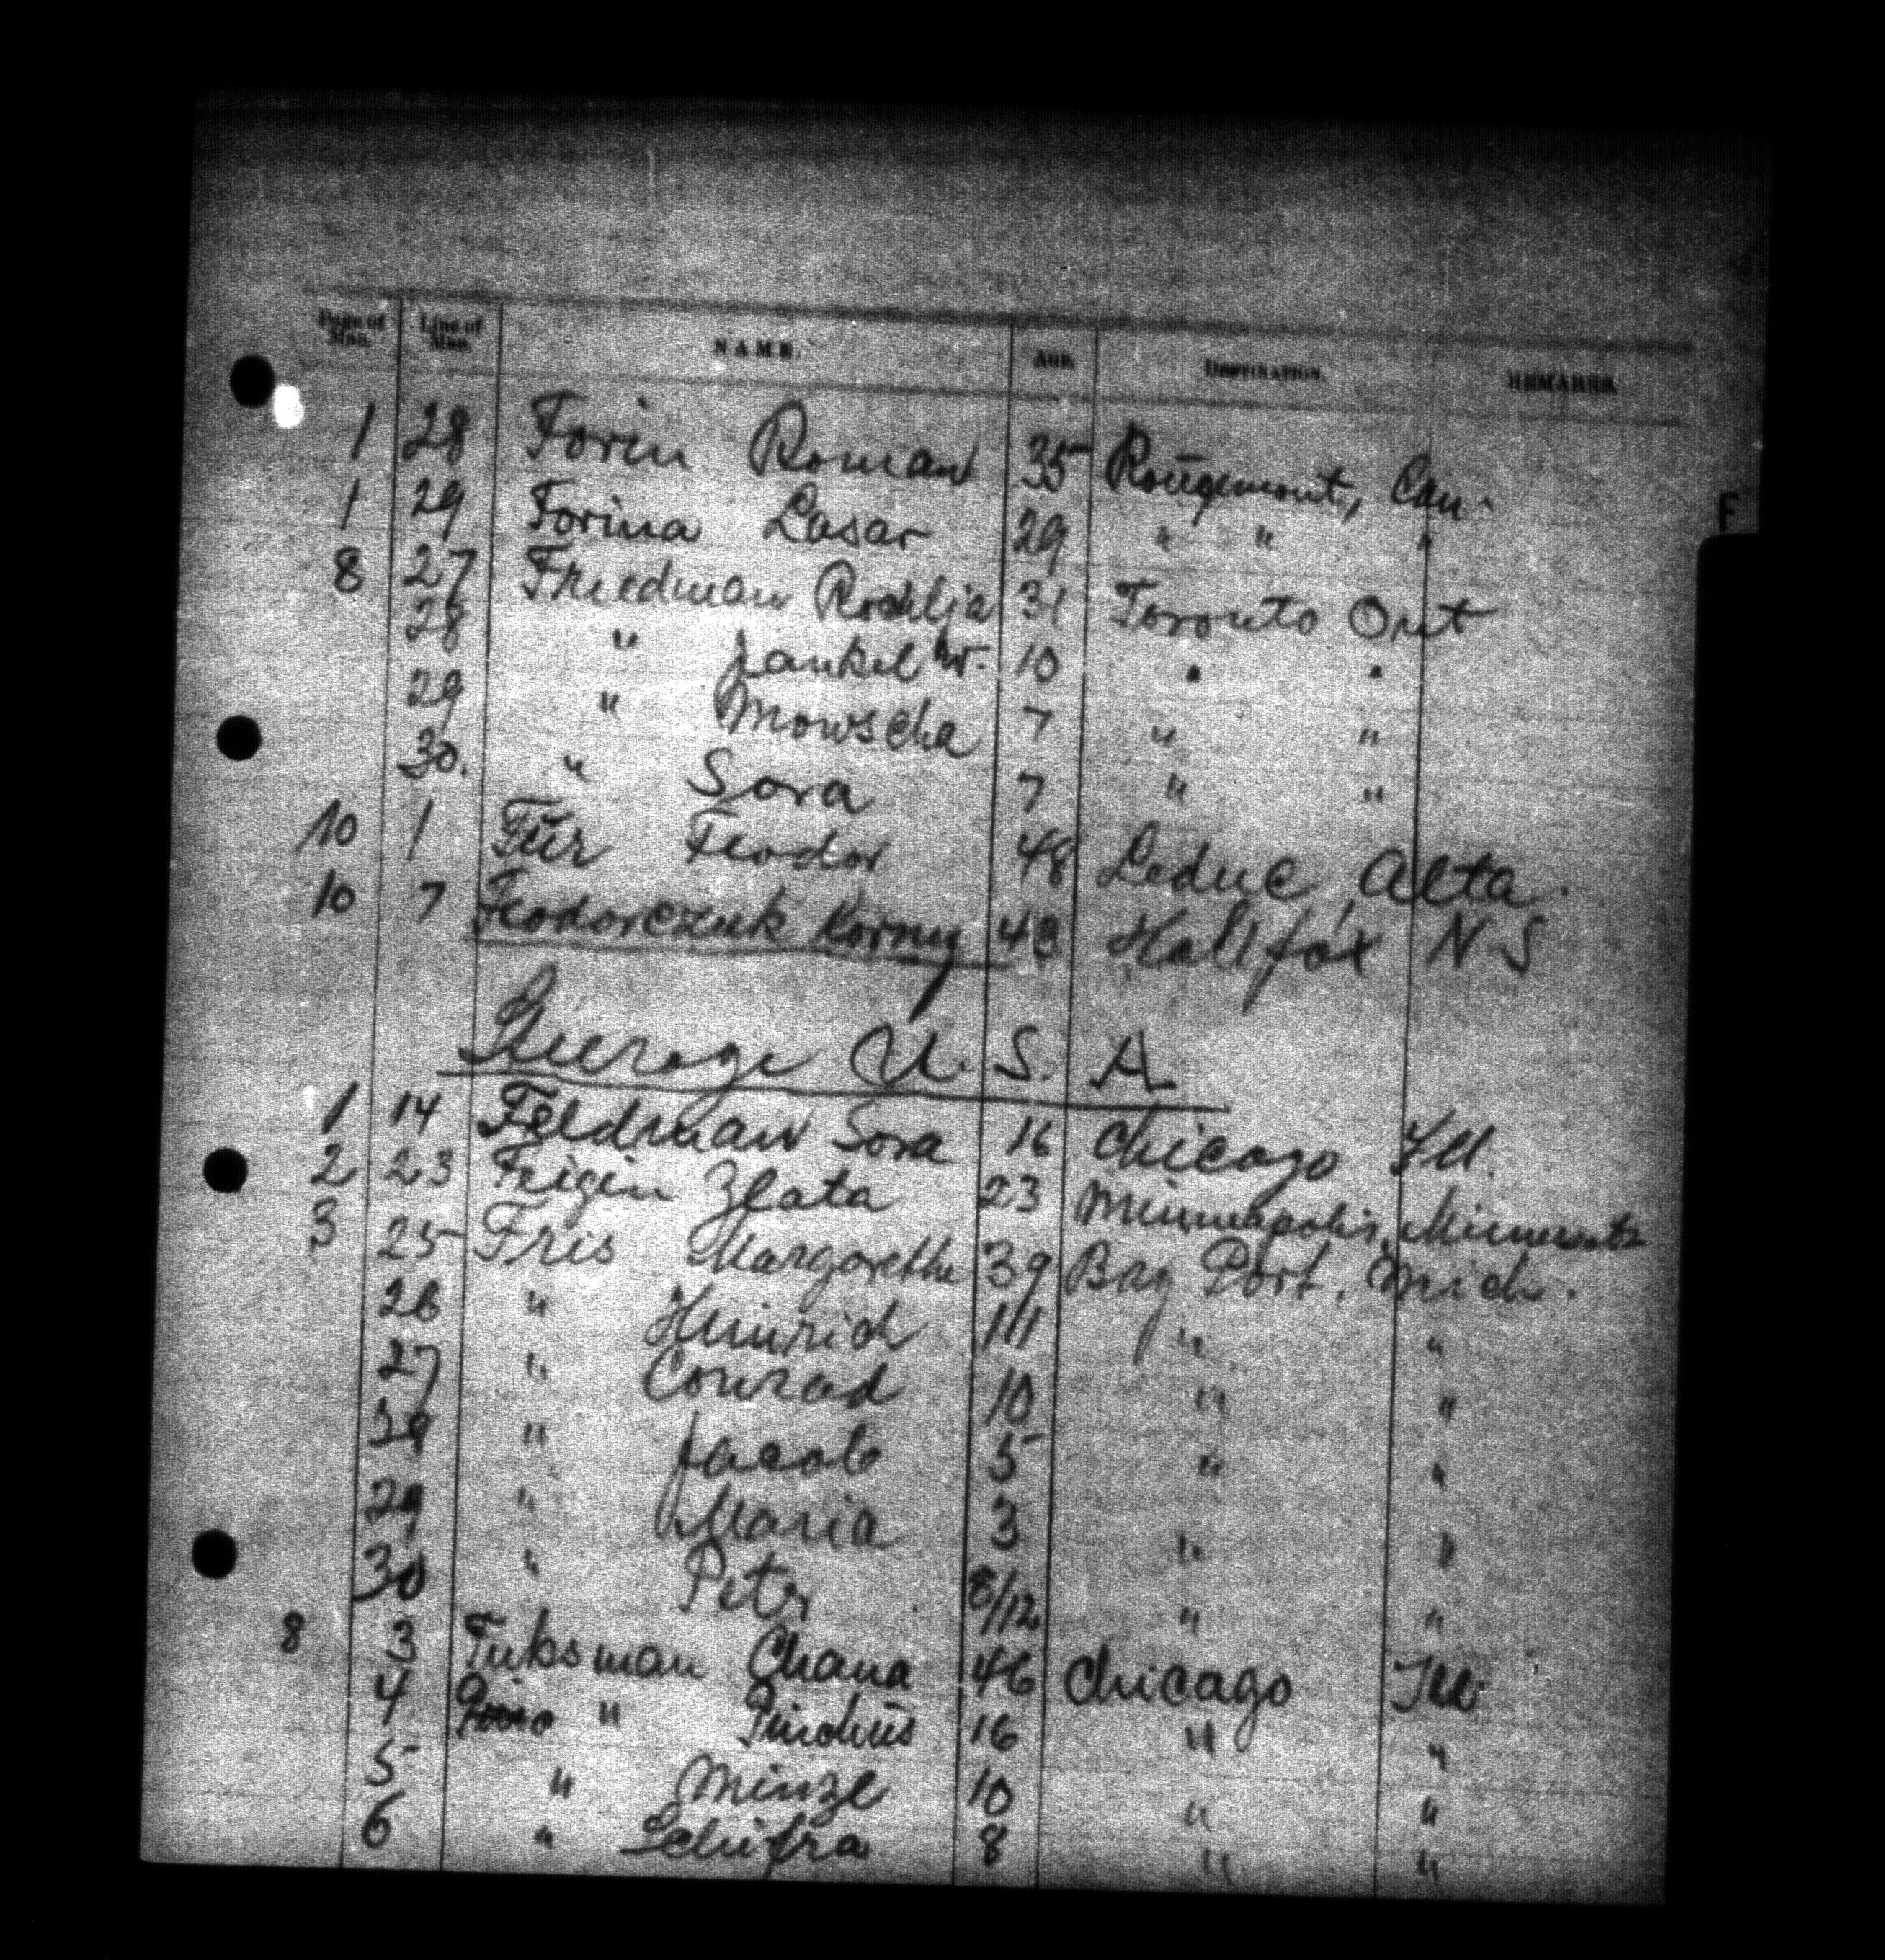 Page of Man. Line of Man. NAME. AGE. DESTINATION. REMARKS.
F
1 28 Forin Roman 35 Rougemont, Can.
1 29 Forina Lasar 29 " " "
8 27 Friedman Rochlja 31 Toronto Ont
28 " Jankel 10 " "
29 " Mowscha 7 " "
30. " Sora 7 " "
10 1 Für Feodor 48 Leduc, Alta.
10 7 Feodorczuk Korney 43 Halifax N S
Steerage U. S. A
1 14 Feldman Sora 16 Chicago Ill.
2 23 Frigin Zlata 23 Minneapolis,
3 25 Fris Margarethe 39 Bay Port, Mich.
26 " Heinrich 11 " "
27 " Conrad 10 " "
" Jacob 5 " "
29 " Maria 3 " "
30 " Petr 8/12 " "
8 3 Fuksman Chana 46 Chicago Ill.
4 " Pinchus 16 " "
5 " Minze 10 " "
6 " Schifra 8 " "